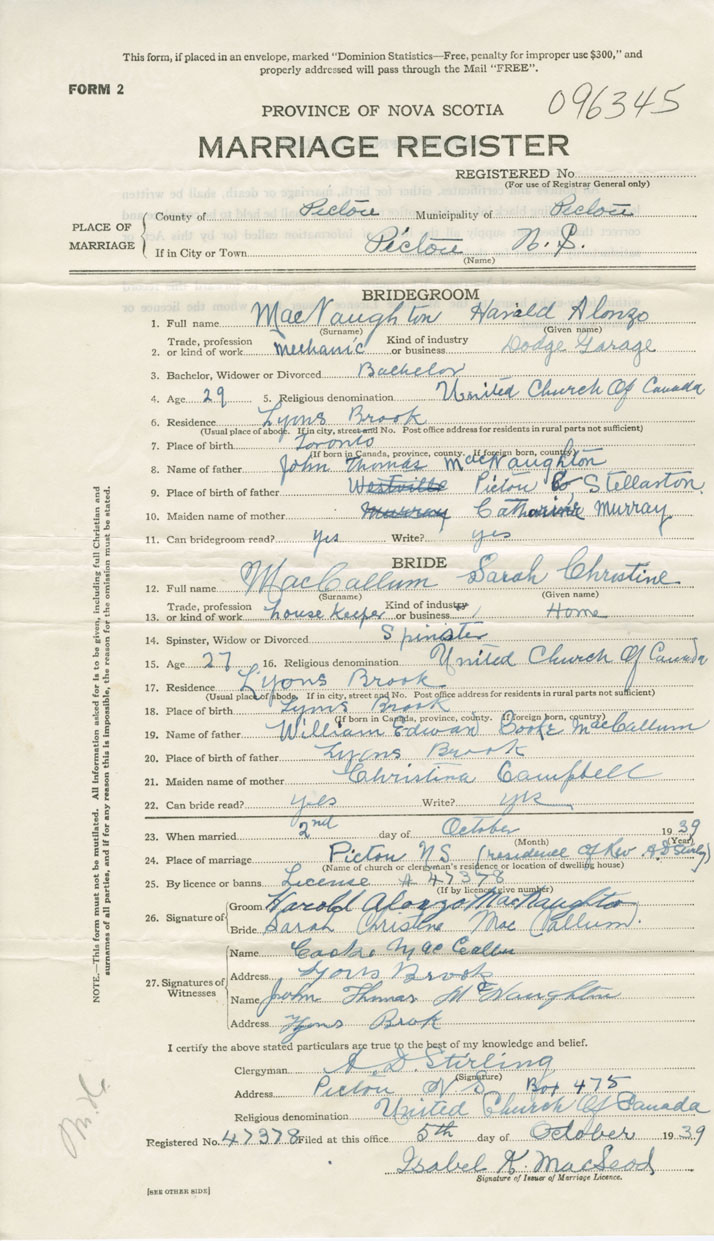 This form, if placed in an envelope, marked "Dominion Statistics—Free, penalty for improper use $300," and
properly addressed will pass through the Mail "FREE".
FORM 2
096345
PROVINCE OF NOVA SCOTIA
MARRIAGE REGISTER
REGISTERED No
(For use of Registrar General only)
PLACE OF MARRIAGE
County of Pictou Municipality of Pictou
If in City or Town Pictou N. S.
(Name)
BRIDEGROOM
1. Full name MacNaughton Harold Alonzo
(Surname) (Given name)
2. Trade, profession or kind of work Mechanic Kind of industry or business Dodge Garage
3. Bachelor, Widower or Divorced Bachelor
4. Age 29 5. Religious denomination United Church Of Canada
6. Residence Lyons Brook
(Usual place of abode. If in city, street and No. Post office address for residents in rural parts not sufficient)
7. Place of birth Toronto
(If born in Canada, province, county. If foreign born, country)
8. Name of father John Thomas MacNaughton
9. Place of father Westville Pictou Co Stellarton
10. Maiden name of mother Murray Catharine Murray
11. Can bridegroom read? yes Write? yes
BRIDE
12. Full name MacCallum Sarah Christine
(Surname) (Given name)
13. Trade, profession or kind of work house keeper Kind of industry or business Home
14. Spinster, Widow or Divorced Spinster
15. Age 27 16. Religious denomination United Church Of Canada
17. Residence Lyons Brook
(Usual place of abode. If in city, street and No. Post office address for residents in rural parts not sufficient)
18. Place of birth Lyons Brook
(If born in Canada, province, county. If foreign born, country)
19. Name of father William Edward Cooke MacCallum
20. Place of birth of father Lyons Brook
21. Maiden name of mother Christina Campbell
22. Can bride read? yes Write? yes
23. When married 2nd day of October 1939
(Month) (Year)
24. Place of marriage Pictou NS (residence of Rev A D Stirling)
(Name of church or clergyman's residence or location of dwelling house)
25. By licence or banns License A 47378
(If by licence give number)
26. Signature of Groom Harold Alonzo MacNaughton
Bride Sarah Christine MacCallum.
27. Signatures of Witnesses
Name Cooke MacCallum
Address Lyons Brook
Name John Thomas McNaughton
Address Lyons Brook
I certify the above stated particulars are true to the best of my knowledge and belief.
Clergyman A. D. Stirling
(Signature)
Address Pictou N S Box 475
Religious denomination United Church Of Canada
Registered No. 47378 Filed at this office 5th day of October 1939
Isabel K. MacLeod
Signature of Issuer of Marriage Licence.
[SEE OTHER SIDE]
NOTE.—This form must not be mutilated. All information asked for is to be given, including full Christian and
surnames of all parties, and if for any reason this is impossible, the reason for the omission must be stated.